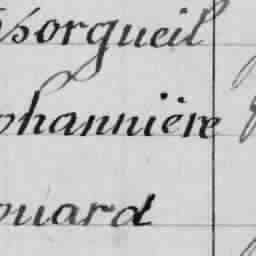 sorgueil
phannière
ouard